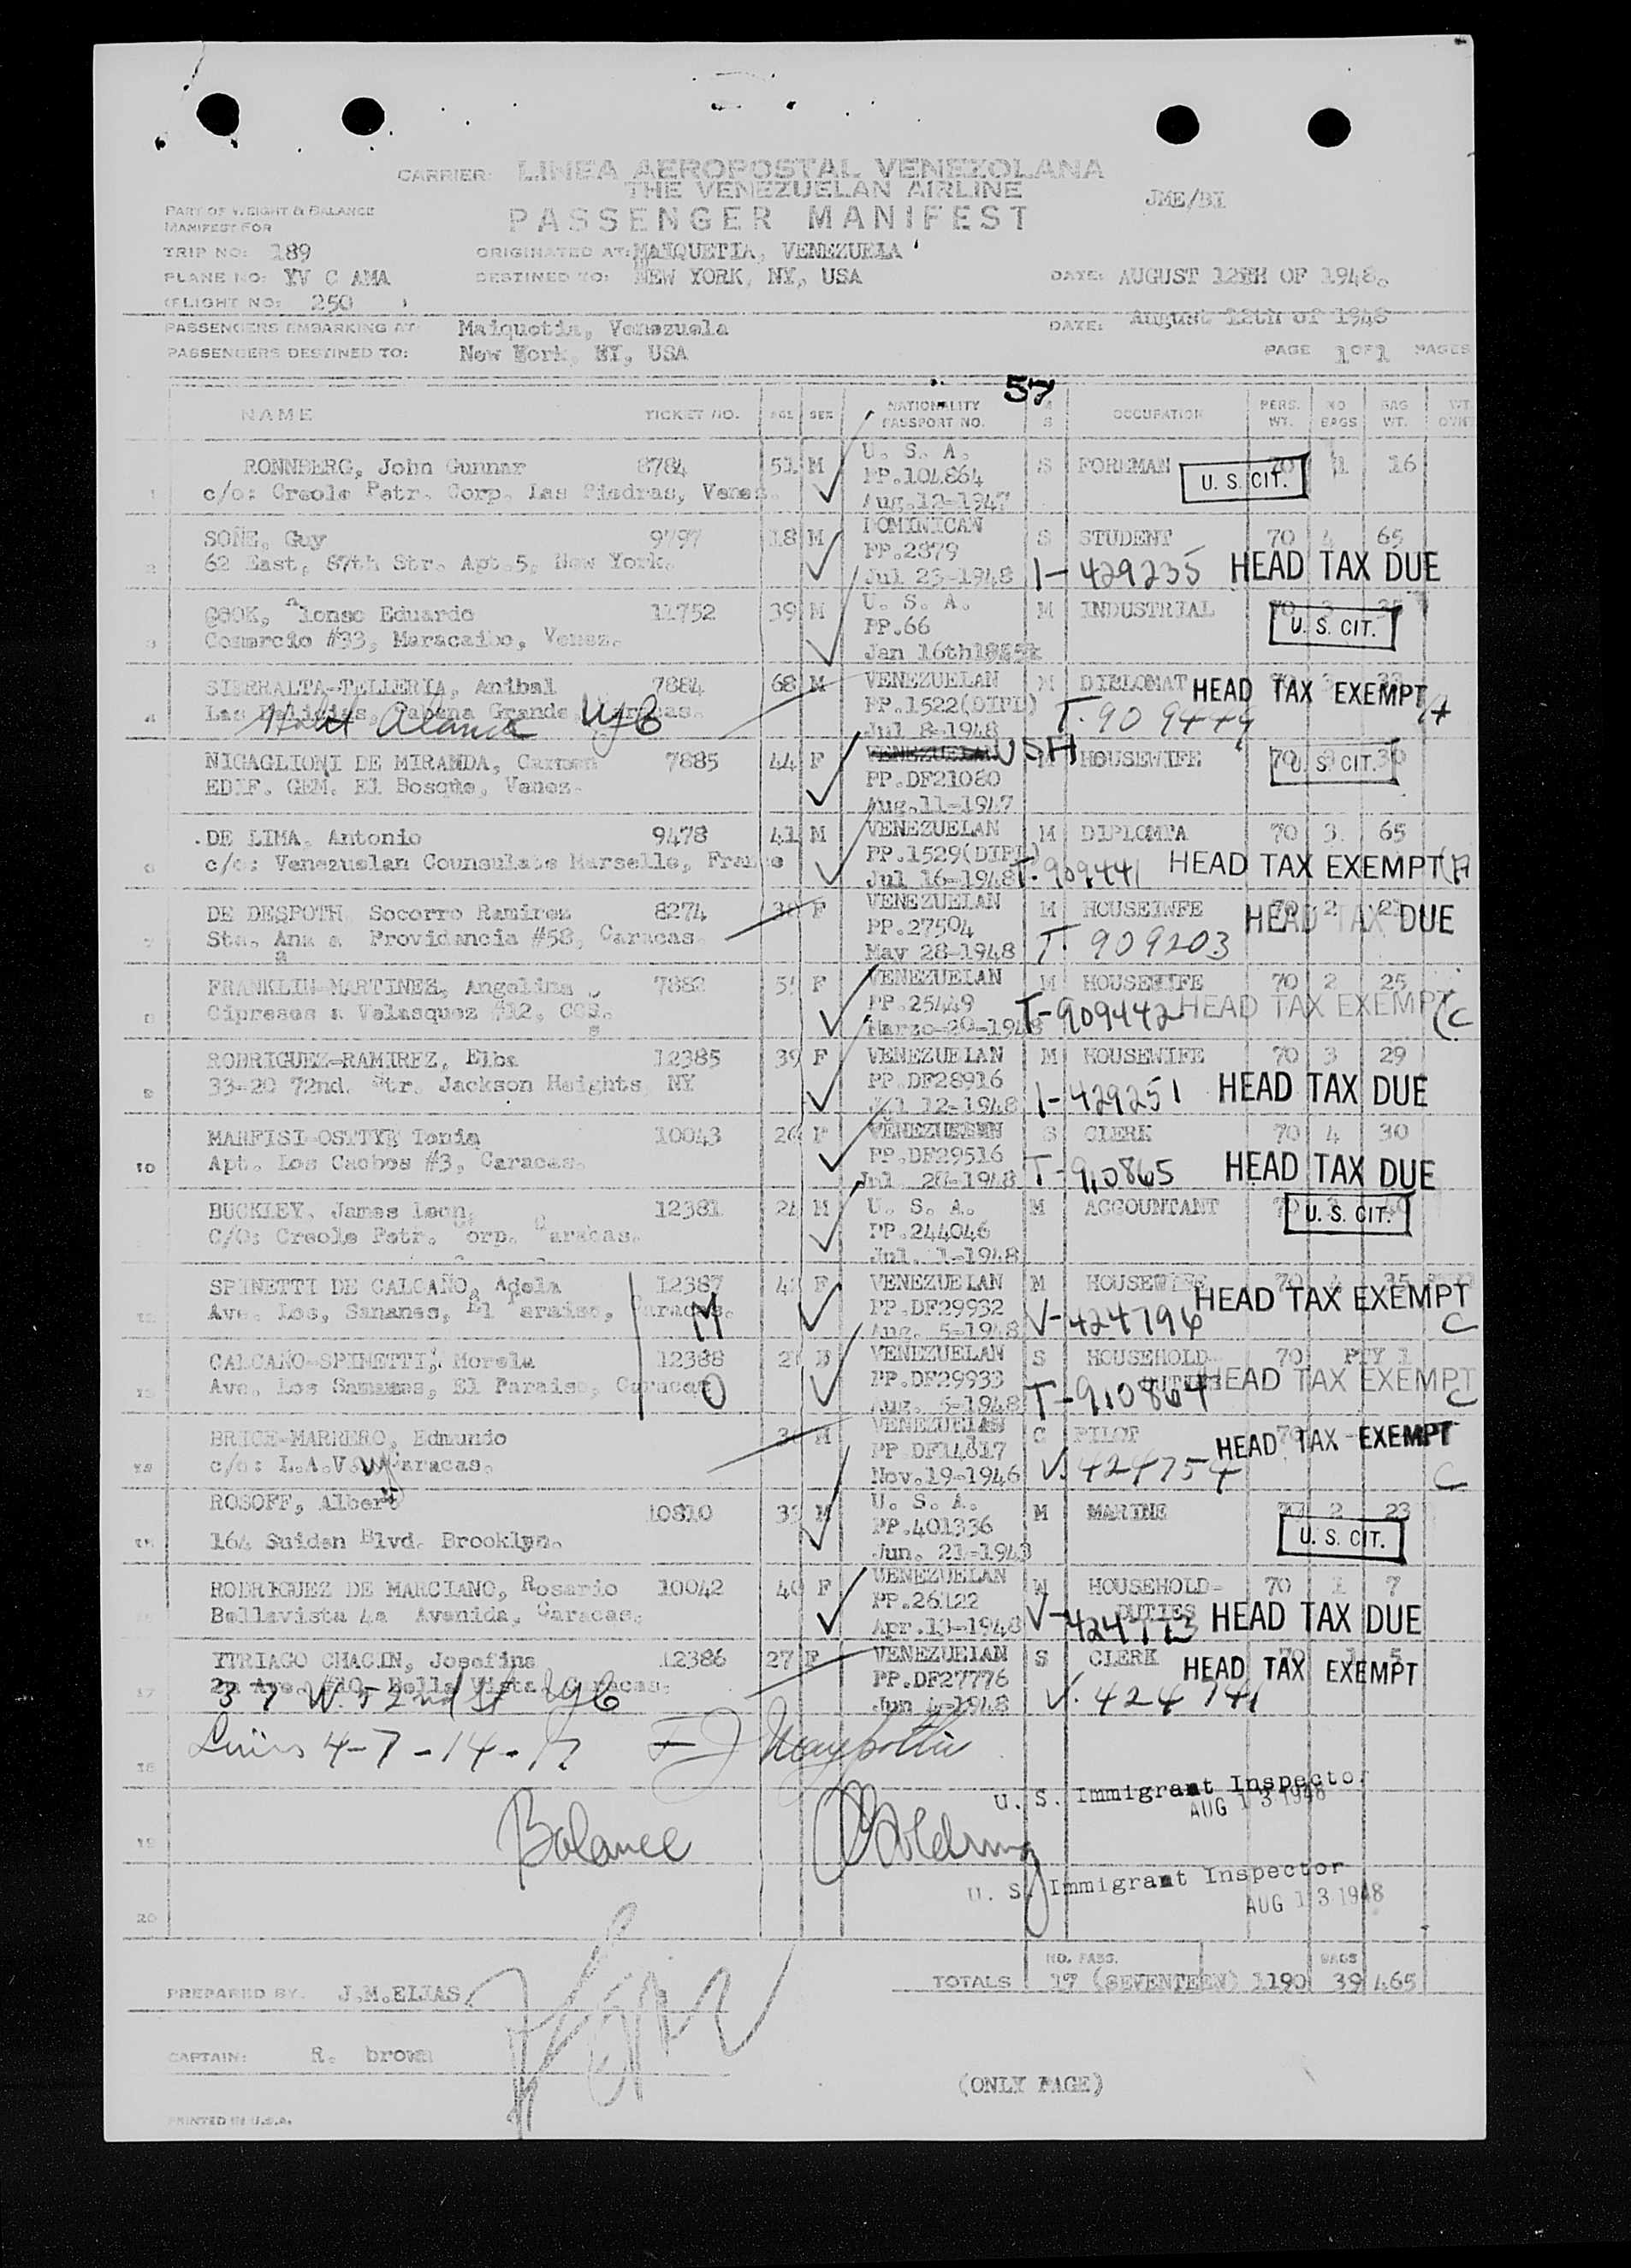 CARRIER: LINEA AEROPOSTAL VENEZOLANA
THE VENEZUELAN AIRLINE
JME/BI
PART OF WEIGHT & BALANCE
MANIFEST FOR
PASSENGER MANIFEST
TRIP NO: 189 ORIGINATED AT: MAIQUETIA, VENEZUELA
PLANE NO: YV C AMA DESTINED TO: NEW YORK, NY, USA DATE: AUGUST 12TH OF 1948.
(FLIGHT NO: 250 )
PASSENGERS EMBARKING AT Maiquetia, Venezuela DATE: August 12th of 1948
PASSENGERS DESTINED TO: New York, NY, USA PAGE 1 OF 1 PAGES
57
NAME TICKET NO. AGE SEX NATIONALITY PASSPORT NO. M S OCCUPATION PERS. WT. NO BAGS BAG WT.
U. S. A.
RONNBERG, John Gunnar 8784 51 M PP.104864 S FOREMAN 70 1 16
1 c/o: Creole Petr. Corp. Las Piedras, Venez. Aug.12-1947 U. S. CIT.
DOMINICAN
SOÑE, Guy 9797 18 M PP.2879 S STUDENT 70 4 65
2 62 East, 87th Str. Apt.5, New York. Jul 23-1948 1-429235 HEAD TAX DUE
U. S. A.
COOK, Alonso Eduardo 11752 39 M PP.66 M INDUSTRIAL 70 3
3 Comercio #33, Maracaibo, Venez. Jan 16th U. S. CIT.
SIERRALTA-TELLERIA, Anibal 7884 68 M VENEZUELAN M DIPLOMAT HEAD TAX EXEMPT
4 Las Sabana Grande Caracas. PP.1522(DIPL) T-909444
Hotel NYC Jul 8-1948
NICAGLIONI DE MIRANDA, Carmen 7885 44 F VENEZUELAN USA HOUSEWIFE 70 30
EDIF. GEM. El Bosque, Venez. PP.DF21080 U. S. CIT.
Aug.11-1947
DE LIMA, Antonio 9478 41 M VENEZUELAN M DIPLOMTA 70 3 65
6 c/o: Venezuelan Counsulate Marselle, France PP.1529(DIPL) T-909441 HEAD TAX EXEMPT (A
Jul 16-1948
DE DESPOTH Socorro Ramirez 8274 38 F VENEZUELAN M HOUSEIWFE 70 2 21
7 Sta. Ana a Providencia #58, Caracas. PP.27504 HEAD TAX DUE
May 28-1948 T. 909203
FRANKLIN-MARTINEZ, Angelina 7882 F VENEZUELAN M HOUSEWIFE 70 2 25
8 Cipreses a Velasquez #12, CCS. PP.25449 T-909442 HEAD TAX EXEMPT (C
Marzo-20-1948
RODRIGUEZ-RAMIREZ, Elba 12385 39 F VENEZUELAN M HOUSEWIFE 70 3 29
9 33-20 72nd. Str. Jackson Heights NY PP.DF28916
Jul 12-1948 1-429251 HEAD TAX DUE
MARFISI-OSTTYR Ionia 10043 26 F VENEZUELAN S CLERK 70 4 30
10 Apt. Los Caobos #3, Caracas. PP.DF29516
Jul 20-1948 T-910865 HEAD TAX DUE
BUCKLEY, James Leon, 12381 M U. S. A. M ACCOUNTANT 70
C/O: Creole Petr. Corp. Caracas. PP.244046 U. S. CIT.
Jul. 1-1948
SPINETTI DE CALCAÑO, Adela 12387 42 F VENEZUELAN M HOUSEWIFE 70 35
12 Ave. Los, Samanes, El Paraiso, Caracas. M PP.DF29932 HEAD TAX EXEMPT
Aug. 5-1948 V-424796 C
CALCAÑO-SPINETTI, Morela 12388 F VENEZUELAN S HOUSEHOLD- 70 PTY 1
13 Ave. Los Samanes, El Paraiso, Caracas O PP.DF29933 DUTIES HEAD TAX EXEMPT
Aug. 5-1948 T-910864 C
BRICE-MARRERO, Edmundo M VENEZUELAN PILOT 70
14 c/o: L.A.V. Caracas. PP DF14817 HEAD TAX EXEMPT
Nov.19-1946 V. 424754 C
ROSOFF, Albert 10810 33 M U. S. A. M MARINE 2 23
15 164 Suiden Blvd. Brooklyn. PP.401336 U. S. CIT.
Jun. 21-1943
RODRIGUEZ DE MARCIANO, Rosario 10042 40 F VENEZUELAN W HOUSEHOLD- 70 1 7
16 Bellavista 4a Avenida, Caracas. PP.26122 DUTIES
Apr.13-1948 V-424773 HEAD TAX DUE
YTRIAGO CHACIN, Josefina 12386 27 F VENEZUELAN S CLERK 70 1 5
17 2a Ave. #10, Bella Vista Caracas. PP.DF27776 HEAD TAX EXEMPT
37 W. 52nd St NYC Jun 4-1948 V. 424741
18 Lines 4-7-14-17
U. S. Immigrant Inspector
AUG 13 1948
19 Balance
U. S. Immigrant Inspector
AUG 13 1948
20
NO. PASS. BAGS
TOTALS 17 (SEVENTEEN) 1190 39 465
PREPARED BY. J.M.ELIAS
CAPTAIN: R. brown
(ONLY PAGE)
PRINTED IN U.S.A.